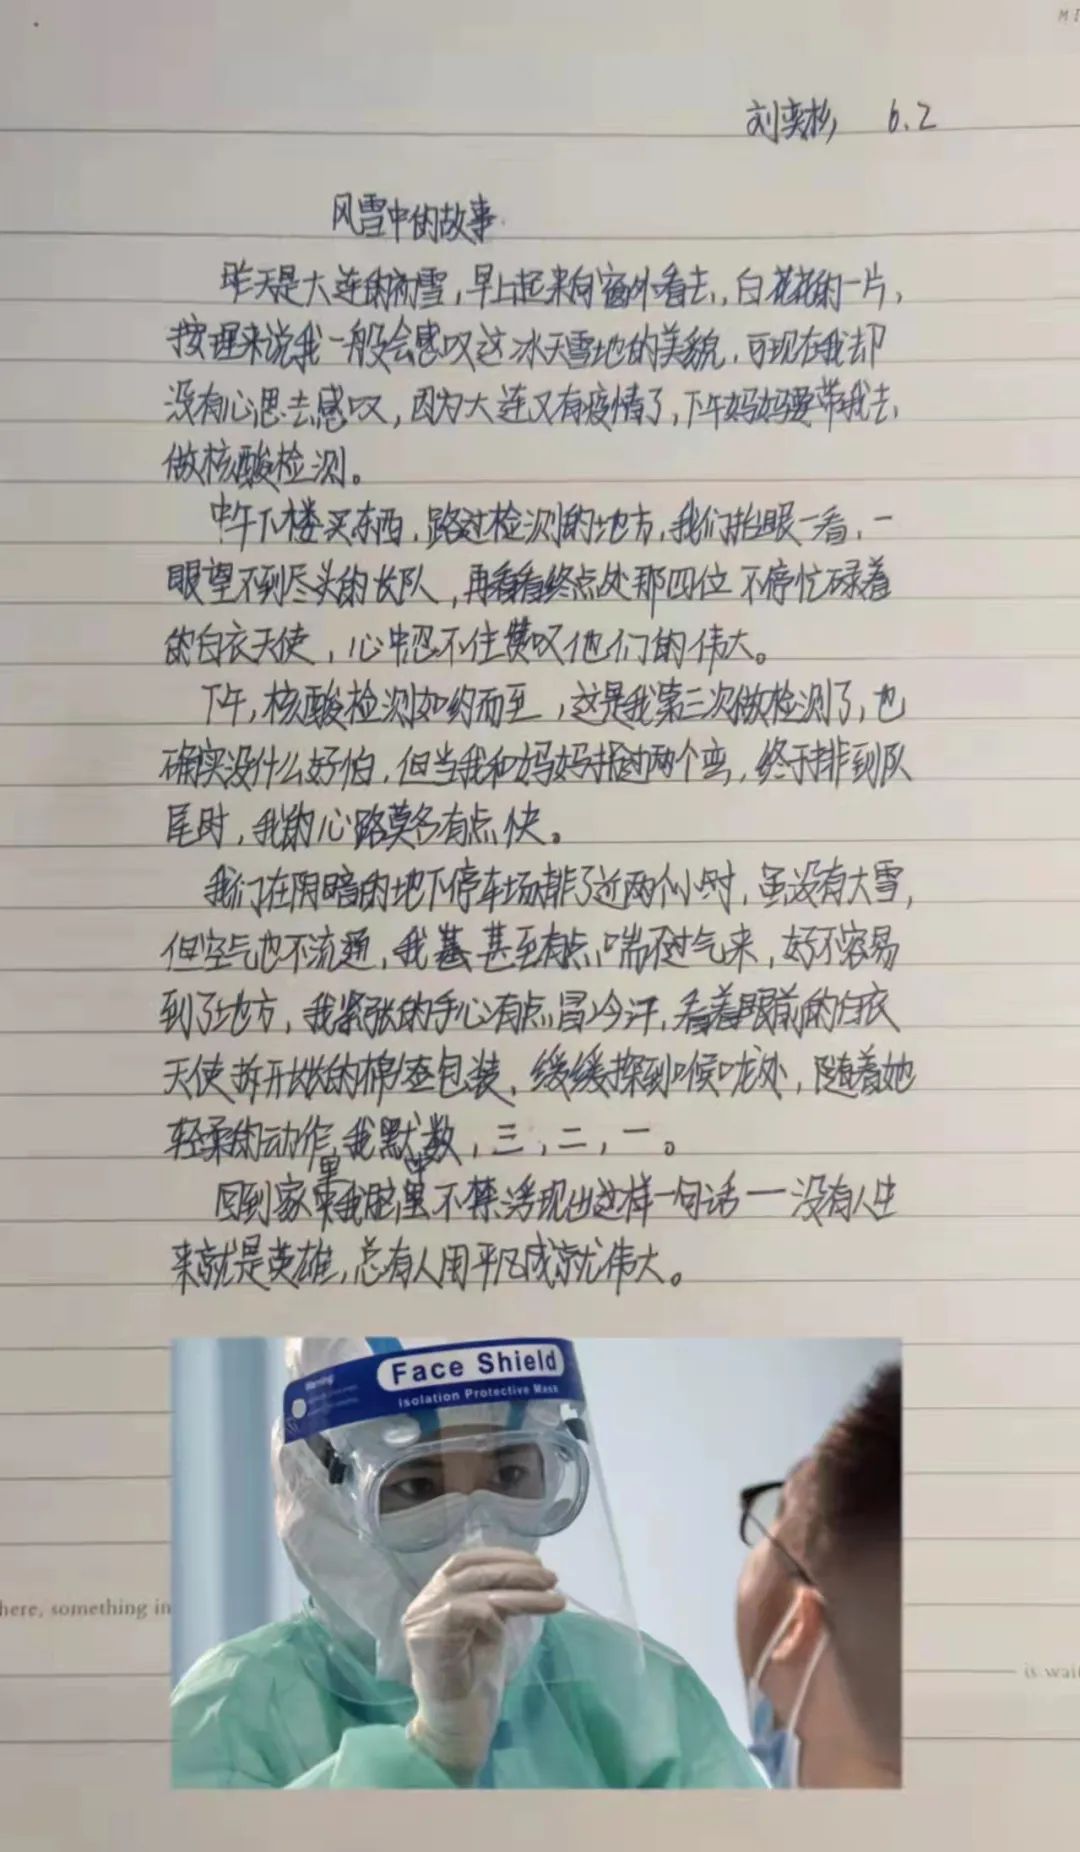 ME
刘奕杉 6.2
风雪中的故事
昨天是大连的初雪，早上起来向窗外看去，白花花的一片，
按理来说我一般会感叹这冰天雪地的美貌，可现在我却
没有心思去感叹，因为大连又有疫情了，下午妈妈要带我去
做核酸检测。
中午下楼买东西，路过检测的地方，我们抬眼一看，一
眼望不到尽头的长队，再看看终点处那四位不停忙碌着
的白衣天使，心中忍不住赞叹他们的伟大。
下午，核酸检测如约而至，这是我第三次做检测了，也
确实没什么好怕，但当我和妈妈拐过两个弯，终于排到队
尾时，我的心路莫名有点快。
我们在阴暗的地下停车场排了近两个小时，虽没有大雪，
但空气也不流通，我甚至有点喘不过气来，好不容易
到了地方，我紧张的手心有点冒冷汗，看着眼前的白衣
天使拆开长长的棉签包装，缓缓探到喉咙处，随着她
轻柔的动作，我默数，三，二，一。
回到家里我脑中不禁浮现出这样一句话一没有人生
来就是英雄，总有人用平凡成就伟大。
Face Shield
Isolation Protective Mask
Warning
here, something in
is wai